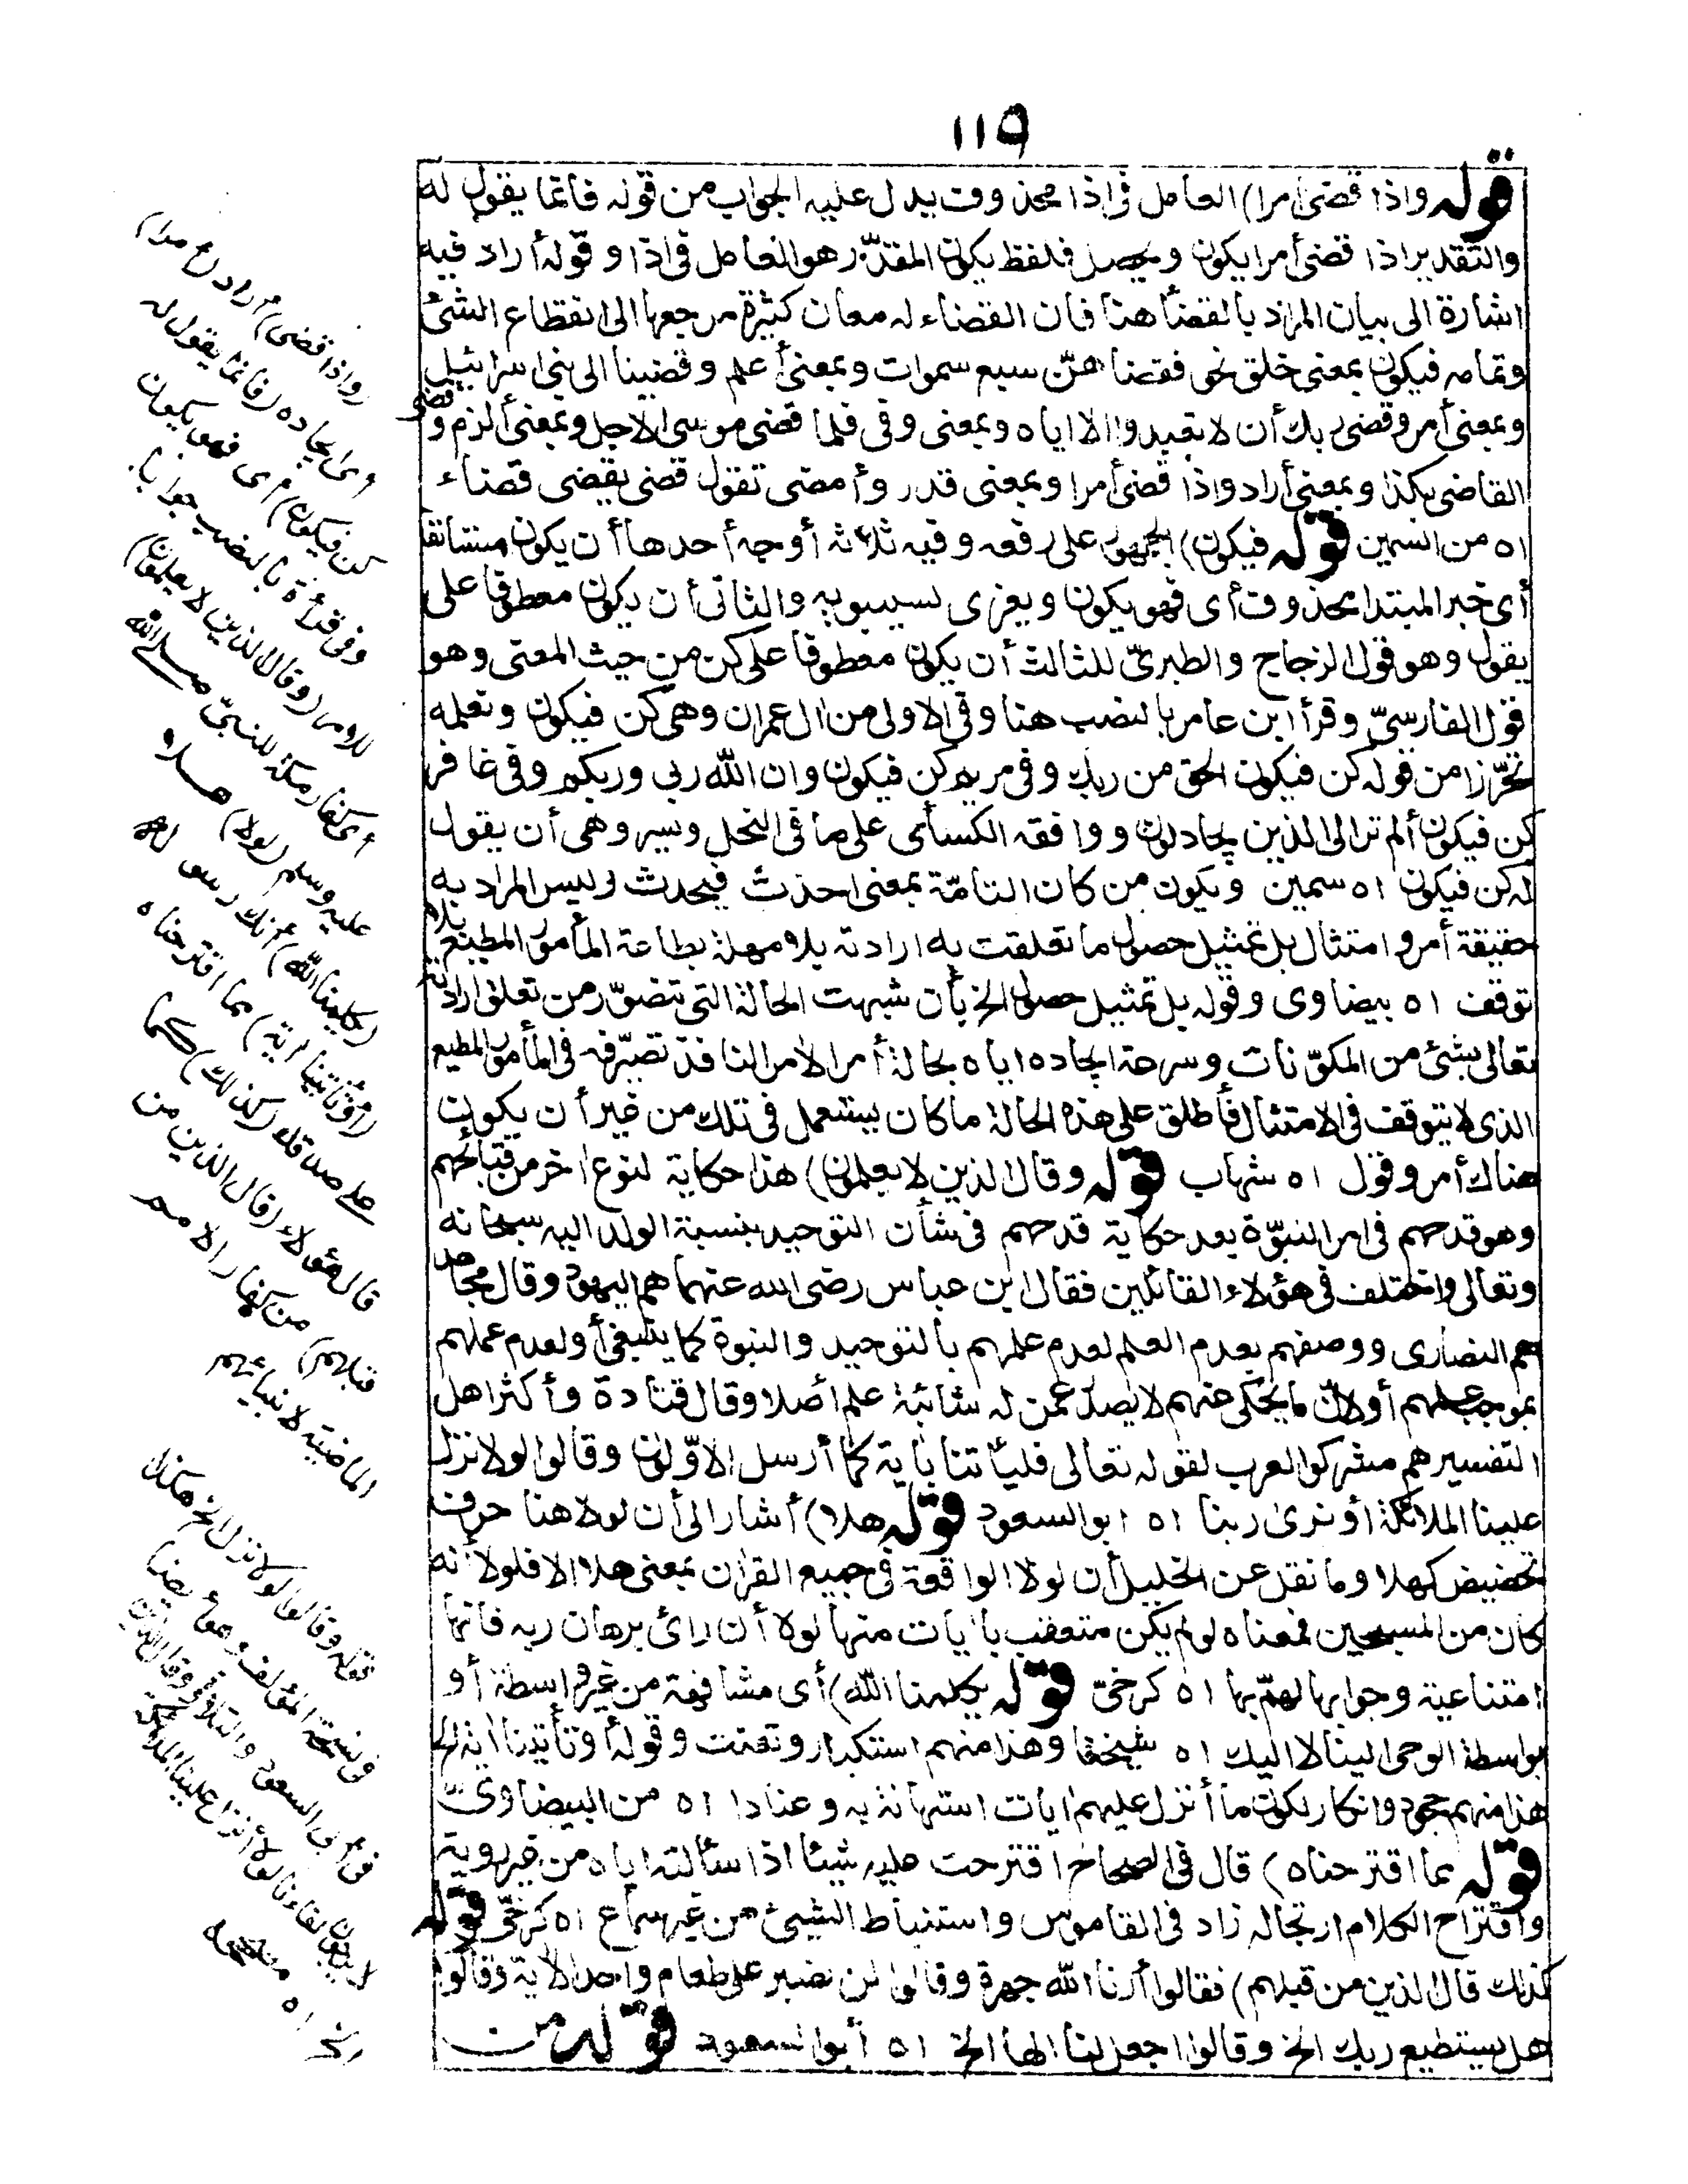 ١١٩
قوله واذا قضى أمرا) العامل فى اذا محذوف يدل عليه الجواب من قوله فانما يقول له
والتقدير اذا قضى أمرا يكون ويحصل فلفظ يكون المقدّر هو العامل فى اذا وقوله أراد فيه
اشارة الى بيان المراد بالقضأ هنا فان القضاء له معان كثيرة مرجعها الى انقطاع الشئ
وتمامه فيكون بمعنى خلق نحو فقضاهنّ سبع سموات وبمعنى أعلم وقضينا الى بنى اسرائيل
وبمعنى أمر وقضى ربك أن لا تعبدوا الا اياه وبمعنى وفى فلما قضى موسى الاجل وبمعنى ألزم وقضى
القاضى بكذا وبمعنى أراد واذا قضى أمرا وبمعنى قدر وأمضى تقول قضى يقضى قضاء
اه من السمين قوله فيكون) الجمهور على رفعه وفيه ثلاثة أوجه أحدها أن يكون مستأنفا
أى خبر المبتدا محذوف أى فهو يكون ويعزى لسيبويه والثانى أن يكون معطوفا على
يقول وهو قول الزجاج والطبرىّ الثالث أن يكون معطوفا على كن من حيث المعنى وهو
قول الفارسىّ وقرأ ابن عامر بالنصب هنا وفى الاولى من ال عمران وهى كن فيكون ونعلمه
تحرّزا من قوله كن فيكون الحق من ربك وفى مريم كن فيكون وان الله ربى وربكم وفى غافر
كن فيكون ألم تر الى الذين يجادلون ووافقه الكسأى على ما فى النحل ويس وهى أن يقول
له كن فيكون اه سمين ويكون من كان التامّة بمعنى احدث فيحدث وليس المراد به
حقيقة أمر وامتثال بل تمثيل حصول ما تعلقت به ارادته بلا مهلة بطاعة المأمور المطيع بلا
توقف اه بيضاوى وقوله بل تمثيل حصول الخ بأن شبهت الحالة التى تتصوّر من تعلق ارادته
تعالى بشئ من المكوّنات وسرعة ايجاده اياه بحالة أمر الامر النافذ تصرّفه فى المأمور المطيع
الذى لا يتوقف فى الامتثال فأطلق على هذه الحالة ما كان يستعمل فى تلك من غير أن يكون
هناك أمر وقول اه شهاب قوله وقال الذين لا يعلمون) هذا حكاية لنوع اخر من قبائحهم
وهو قدحهم فى امر النبوّة بعد حكاية قدحهم فى شأن التوحيد بنسبة الولد اليه سبحانه
وتعالى واختلف فى هؤلاء القائلين فقال ابن عباس رضى الله عنهما هم اليهود وقال مجاهد
هم النصارى ووصفهم بعدم العلم لعدم علمهم بالتوحيد والنبوة كما ينبغى أو لعدم عملهم
بموجب علمهم أو لانّ ما يحكى عنهم لا يصدر عمن له شائبة علم أصلا وقال قتادة وأكثر اهل
التفسير هم مشركوا العرب لقوله تعالى فليأتنا بأية كما أرسل الاوّلون وقالوا لولا نزل
علينا الملائكة أو نرى ربنا اه ابو السعود قوله هلا) أشار الى أن لولا هنا حرف
تحضيض كهلا وما نقل عن الخليل أن لولا الواقعة فى جميع القران بمعنى هلا الا فلولا أنه
كان من المسبحين فمعناه لو لم يكن متعقب بأيات منها لولا أن رأى برهان ربه فانها
امتناعية وجوابها لهمّ بها اه كرخىّ قوله يكلمنا الله) أى مشافهة من غير واسطة أو
بواسطة الوحى الينا لا اليك اه شيخنا وهذا منهم استكبار وتعنت وقوله أو تأتينا اية الخ
هذا منهم جحود وانكار لكون ما أنزل عليهم ايات استهانة به وعنادا اه من البيضاوىّ
قوله مما اقترحناه) قال فى الصحاح اقترحت عليه شيئا اذا سألته اياه من غير روية
واقتراح الكلام ارتجاله زاد فى القاموس واستنباط الشيئ من غير سماع اه كرخىّ قوله
كذلك قال الذين من قبلهم) فقالوا أرنا الله جهرة وقالوا لن نصبر على طعام واحد الاية وقالوا
هل يستطيع ربك الخ وقالوا اجعل لنا الها الخ اه أبو السعود قوله من
(واذا قضى) أراد (أمرا)
أى ايجاده (فانما يقول له
كن فيكون) أى فهو يكون
وفى قرأة بالنصب جوابا
للامر (وقال الذين لا يعلمون)
أى كفار مكة للنبىّ صلى الله
عليه وسلم (لولا) هلا
(يكلمنا الله) أنك رسوله
(أو تأتينا اية) مما اقترحناه
على صدقك (كذلك) كما
قال هؤلاء (قال الذين من
قبلهم) من كفار الامم
الماضية لانبيائهم
قوله وقالوا لولا نزل الخ هكذا
فى نسخة المؤلف وهو أيضا
فى أبى السعود والتلاوة وقال الذين
لا يرجون لقاءنا لولا أنزل علينا الملائكة
الخ اه